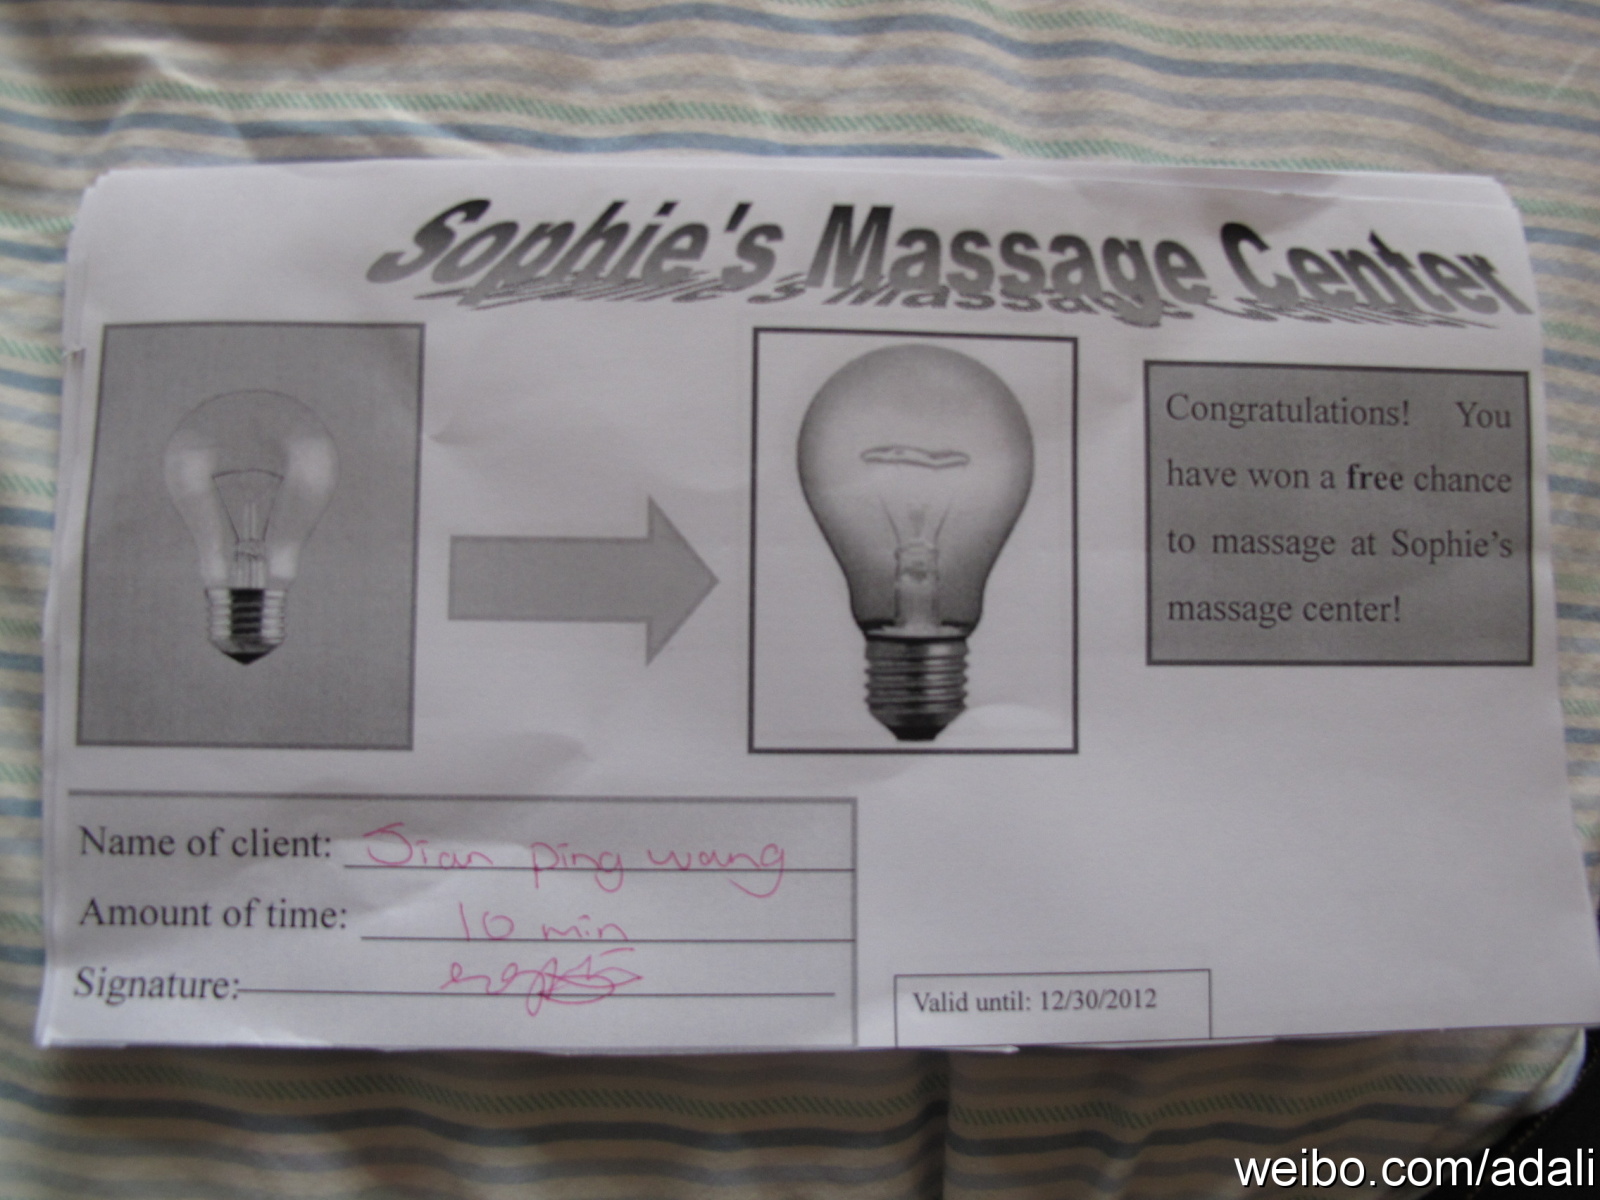 Sophie's Massage Center
Congratulations! You
have won a free chance
to massage at Sophie's
massage center!
Name of client: Jian ping wang
Amount of time: 10 min
Signature:
Valid until: 12/30/2012
weibo.com/adali